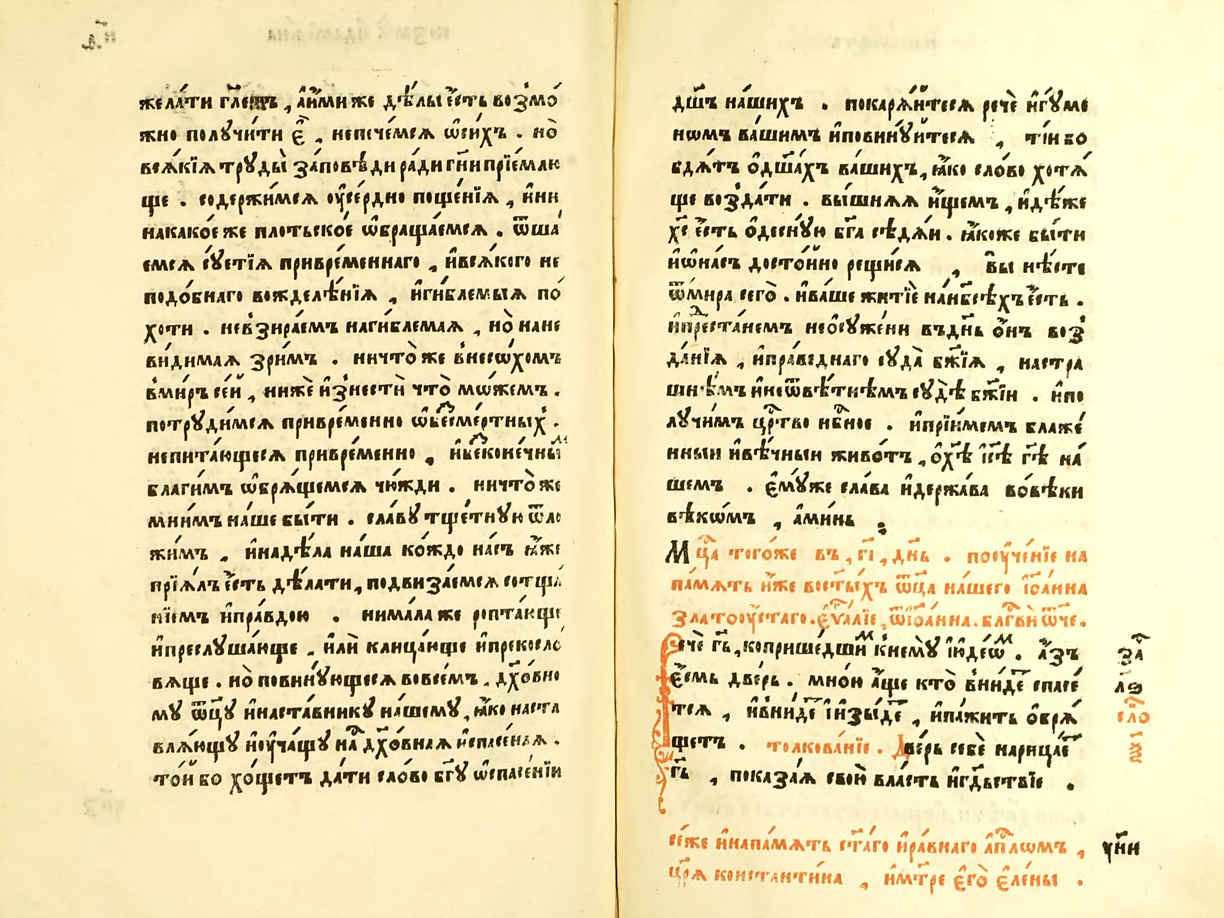 желáти гл҃етъ , а҆и҆́миже дѣ́лы є҆́сть возмо́
жно полꙋчи́ти є҆̀ , непече́мсѧ ѡ҆си́хъ . но̀
всѧ́кїѧ трꙋды̀ за́повѣди ради гн҃и прїе́млю
ще . содержи́мсѧ оу҆се́рдно поще́нїѧ , и҆ни
накако́еже пло́тьское ѡ҆браща́емсѧ . ѿша
емсѧ сꙋетїѧ привре́меннаго , и҆всѧ́кого не
подо́бнаго вожделѣ́нїѧ , и҆ги́блемыѧ по́
хоти . невзира́емъ наги́блемаѧ , но̀ нане
ви́димаѧ зри́мъ . ничто́же внесо́хомъ
вми́ръ се́й , нижѐ и҆знестѝ что̀ мо́жемъ .
потрꙋди́мсѧ привре́менно ѡ҆бесме́ртныхъ .
непита́ющесѧ привре́менно , и҆бесконе́чны
благи́мъ ѡ҆брѧ́щемсѧ чю́жди . ничто́же
мни́мъ на́ше бы́ти . сла́вꙋ тще́тнꙋю ѿло
жи́мъ , и҆надѣ́ла на́ша ко́ждо на́съ ꙗ҆́же
прїѧ́лъ є҆́сть дѣ́лати , подвиза́емсѧ сотща́
нїемъ и҆пра́вдою . нима́лаже ропта́юще
и҆преслꙋша́юще , и҆лѝ кляꙋ́юще и҆прекосло
вѧще . но̀ повинꙋ́ющесѧ вовсе́мъ , дх҃о́вно
мꙋ ѿц҃ꙋ̀ и҆наста́вникꙋ на́шемꙋ , ꙗ҆́ко наста
влѧ́ющꙋ и҆оу҆ча́щꙋ на̀ дх҃о́внаѧ и҆спасе́наѧ .
то́й бо хо́щетъ да́ти сло́во бг҃ꙋ ѡ҆спасе́нїи
дш҃ъ на́шихъ . покарѧ́йтесѧ речѐ и҆гꙋ́ме
номъ ва́шимъ и҆повинꙋ́йтесѧ , ті́и бо
бдѧ́тъ ѡ҆дш҃а́хъ ва́шихъ , ꙗ҆́ко сло́во хотѧ́
ще возда́ти . вы́шнѧѧ и҆́щемъ , и҆дѣ́же
хс҃ є҆́сть ѡ҆деснꙋ́ю бг҃а сѣдѧ́й . ꙗ҆́коже бы́ти
и҆ѡ҆на́съ досто́йно рещи́сѧ , вы̀ нѣ́сте
ѿми́ра сего̀ . и҆ва́ше житїѐ нан҃бсѣ́хъ є҆́сть .
и҆преста́немъ неѡсꙋже́ни въдн҃ь ѻ҆́нъ воз
да́нїѧ , и҆пра́веднаго сꙋда̀ бж҃їѧ , настра
шнѣ́мъ и҆неѿвѣ́тнѣмъ сꙋдѣ̀ бж҃їи . и҆по
лꙋчи́мъ црⷭ҇тво нбⷭ҇ное . и҆прїи́мемъ блаже́
нныи и҆вѣ́чныи живо́тъ , ѡ҆хⷭ҇ѣ і҆сⷭ҇ѣ гⷭ҇ѣ на́
шемъ . є҆мꙋ́же сла́ва и҆держа́ва вовѣ́ки
вѣко́мъ , а҆ми́нь
Мцⷭ҇а того́же въ , гі҃ , дн҃ь . поꙋче́нїе на
па́мѧть и҆́же востⷭ҇ы́хъ ѿца̀ на́шего і҆ѡа́нна
златоꙋ́стаго . є҆ѵⷢ҇а́лїе , ѿі҆ѡа́нна . блгⷭ҇ви́ ѿ҆че .
Речѐ гдⷭ҇ь , коприше́дшимъ кнемꙋ̀ і҆ꙋде́ѡмъ . а҆́зъ
є҆́смь две́рь . мно́ю а҆́ще кто̀ вни́детъ спасе́
тсѧ , и҆вни́детъ и҆и҆зы́детъ , и҆па́жить ѡ҆брѧ́
щетъ . толкова́нїе . Две́рь себѐ нарица́етъ
гдⷭ҇ь , показа́ѧ сво́ю вла́сть и҆гдⷭ҇ьствїе .
за
лѳ
сло
се́же и҆напа́мѧть стⷭ҇а́го и҆ра́внаго а҆пⷭ҇ломъ ,
цр҃ѧ̀ константи́на , и҆мт҃ре є҆го̀ є҆ле́ны .